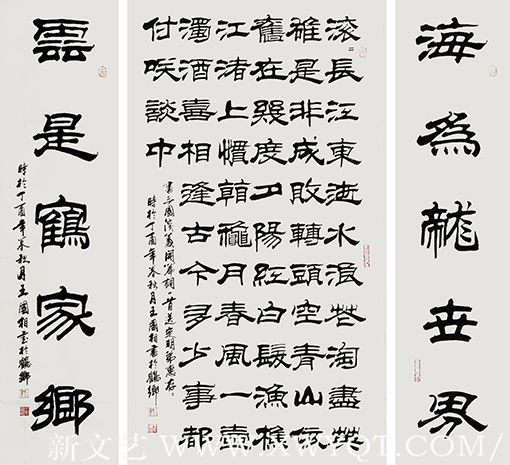 海為龍世界
滚=長江東逝水浪花淘盡英
雄是非成敗轉頭空青山依
舊在幾度夕陽紅白髮漁樵
江渚上慣看龝月春風一壺
濁酒喜相逢古今多少事都
付咲談中
書三國演義開篇詞一首送宋明弟惠存
時於丁酉年秋月王國相書於鶴鄉
雲是鶴家鄉
時於丁酉年秋月王國相書於鶴鄉
新文艺 WWW.XWYQT.COM